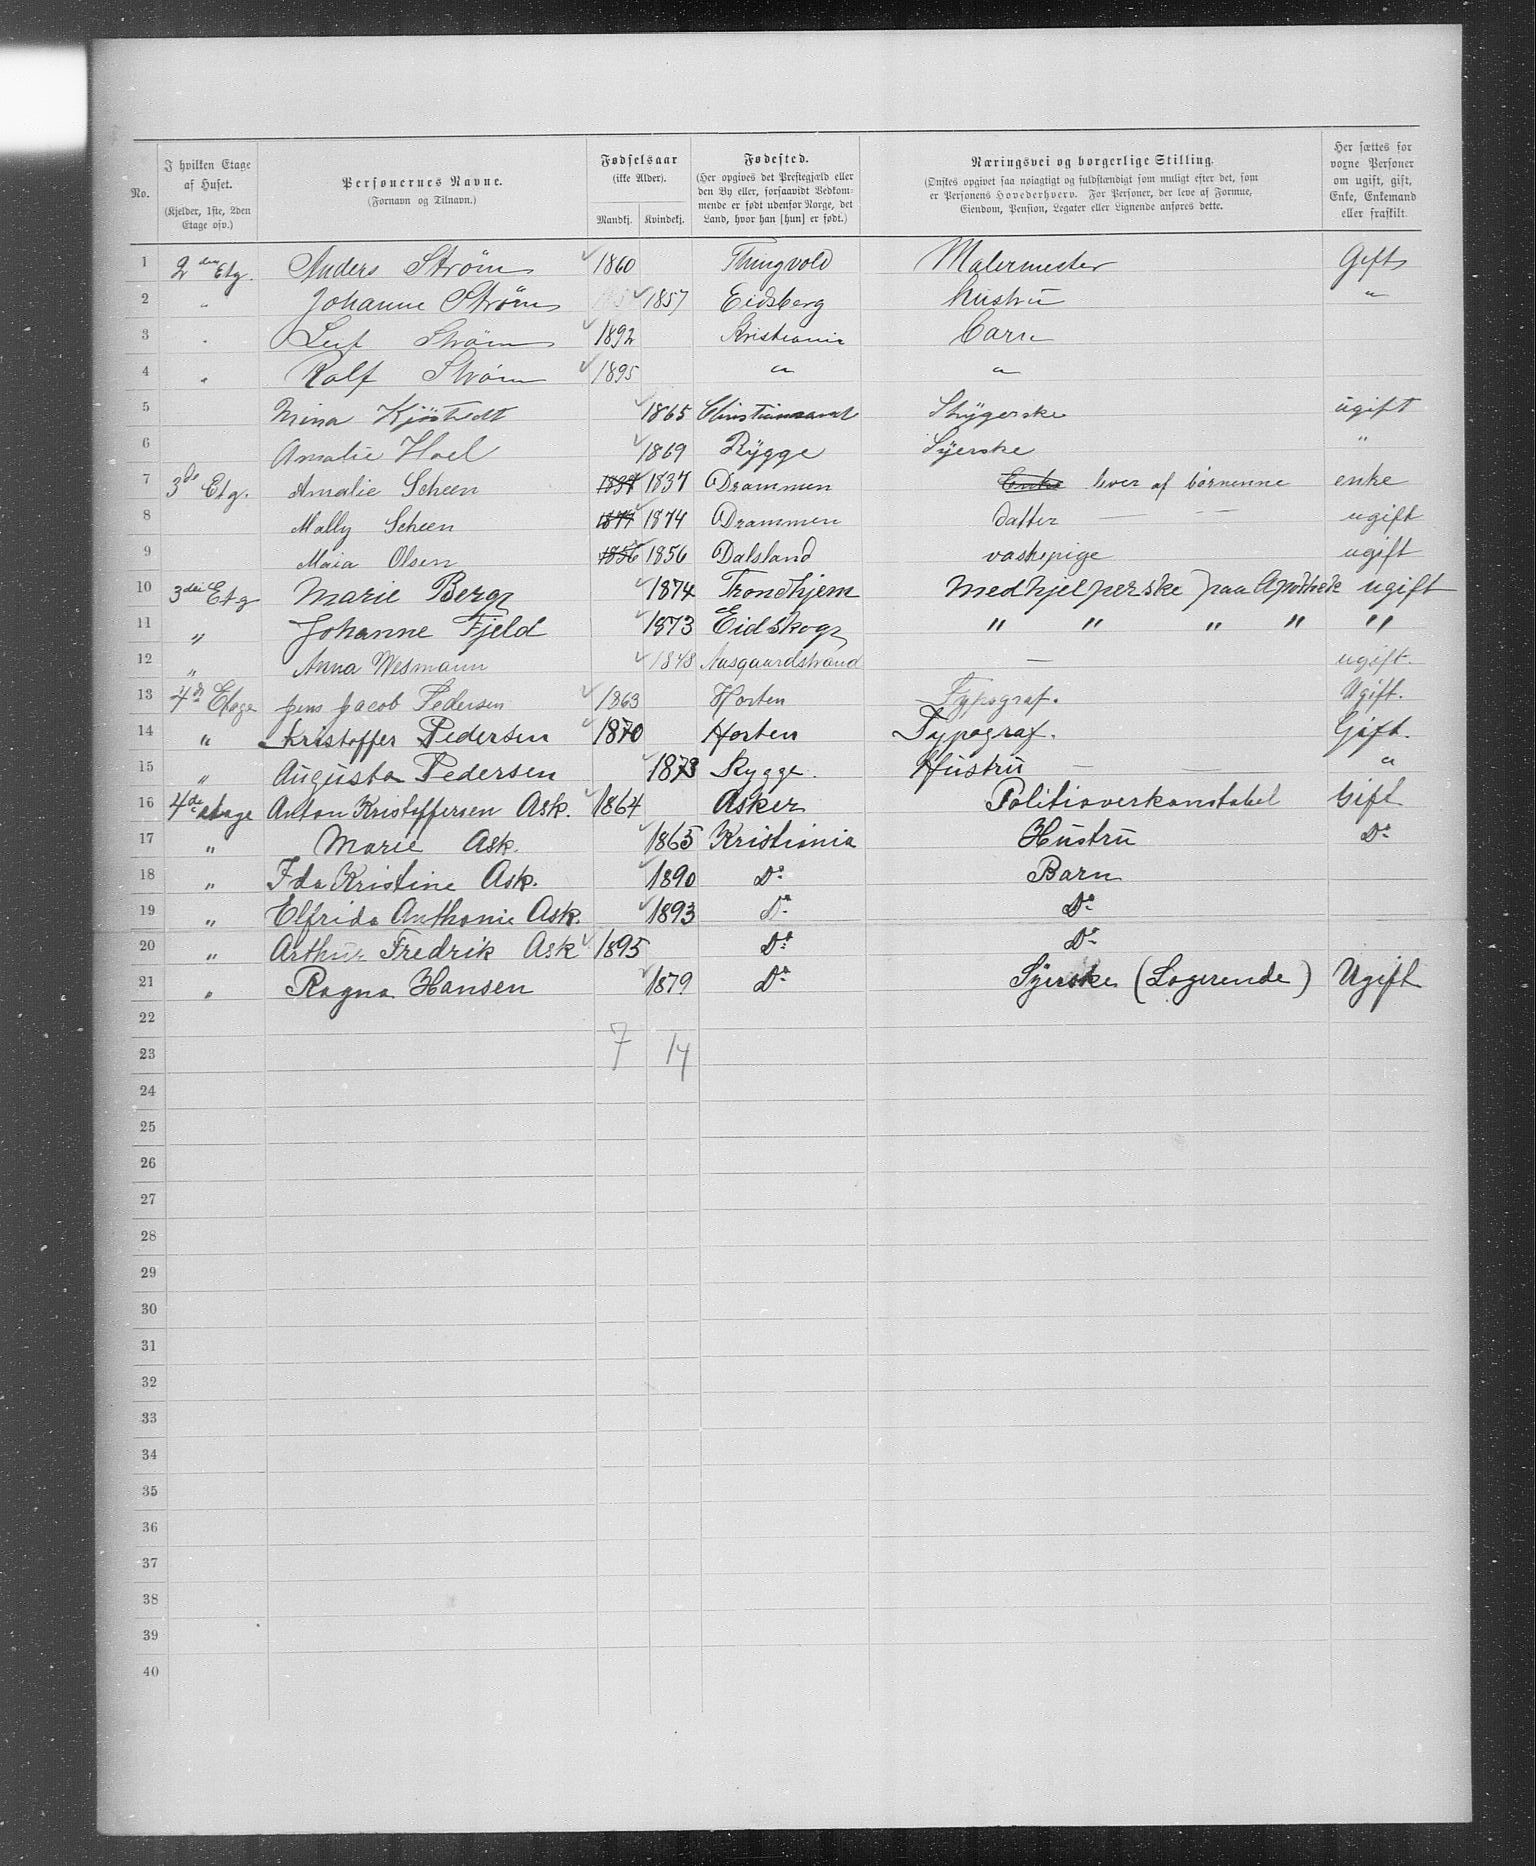 No.
I hvilken Etage af Huset.
(Kjelder, 1ste, 2den Etage osv.)
Personernes Navne.
(Fornavn og Tilnavn.)
Fødselsaar
(ikke Alder).
Mandkj. Kvindekj.
Fødested.
(Her opgives det Præstegjæld eller den By eller, forsaavidt Vedkommende er født udenfor Norge, det Land, hvor han [hun] er født.)
Næringsvei og borgerlige Stilling.
(Ønskes opgivet saa nøiagtigt og fuldstændigt som muligt efter det, som er Personens Hovederhverv. For Personer, der leve af Formue, Eiendom, Pension, Legater eller Lignende anføres dette.
Her sættes for voxne Personer om ugift, gift, Enke, Enkemand eller fraskilt.
1 2den Etg. Anders Strøm 1860 Thingvold Malermester Gift
2 " Johanne Strøm 1857 Eidsberg Hustru "
3 " Leif Strøm 1892 Kristiania Barn
4 " Rolf Strøm 1895 " "
5 Mina Kjöstedt 1865 Christianssand Strygerske ugift
6 Amalie Hoel 1869 Rygge Syerske "
7 3de Etg. Amalie Scheen 1837 1837 Drammen Enke lever af børnenne enke
8 Mally Scheen 1874 1874 Drammen datter — — ugift
9 Maia Olsen 1856 1856 Dalsland vaskepige ugift
10 3die Etg Marie Berg 1874 Trondhjem Medhjelperske paa Apothek ugift
11 " Johanne Fjeld 1873 Eidskog " " " " "
12 " Anna Wesmann 1848 Aasgaardstrand — ugift.
13 4de Etage Jens Jacob Pedersen 1863 Horten Typograf. Ugift.
14 " Kristoffer Pedersen 1870 Horten Typograf. Gift.
15 " Augusta Pedersen 1873 Rygge. Hustru — — "
16 4de etage Anton Kristoffersen Ask. 1864 Asker Politioverkonstabel Gift
17 " Marie Ask. 1865 Kristiania Hustru Do
18 " Ida Kristine Ask. 1890 Do Barn
19 " Elfrida Anthonie Ask. 1893 Do Do
20 " Arthur Fredrik Ask 1895 Do Do
21 " Ragna Hansen 1879 Do Syerske (Logerende) Ugift
22
7 14
23
24
25
26
27
28
29
30
31
32
33
34
35
36
37
38
39
40